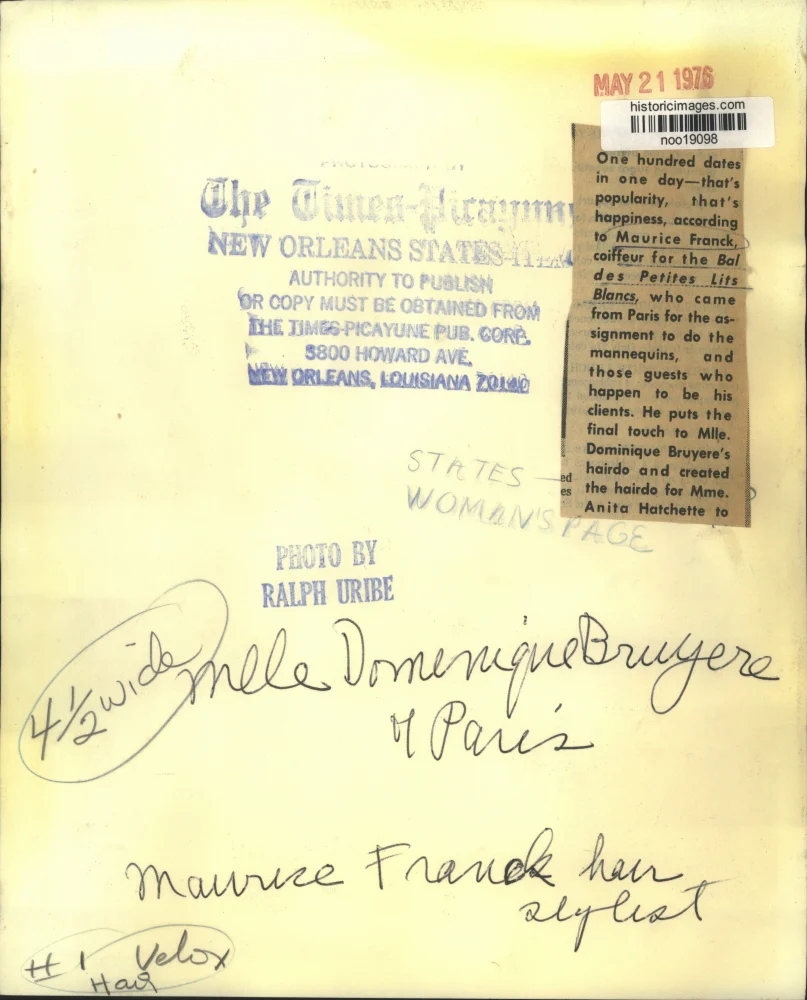 MAY 21 1976
historicimages.com
noo19098
One hundred dates
in one day—that's
popularity, that's
happiness, according
to Maurice Franck,
coiffeur for the Bal
des Petites Lits
Blancs, who came
from Paris for the as-
signment to do the
mannequins, and
those guests who
happen to be his
clients. He puts the
final touch to Mlle.
Dominique Bruyere's
hairdo and created
the hairdo for Mme.
Anita Hatchette to
ed
es
The Times-Picayune
NEW ORLEANS STATES-ITEM
AUTHORITY TO PUBLISH
OR COPY MUST BE OBTAINED FROM
THE TIMES-PICAYUNE PUB. CORP.
3800 HOWARD AVE.
NEW ORLEANS, LOUISIANA 70140
STATES —
WOMAN'S PAGE
PHOTO BY
RALPH URIBE
4 1/2 wide
Mlle Domenique Bruyere
of Paris
Maurice Franck hair
stylist
# 1 Velox
Hair